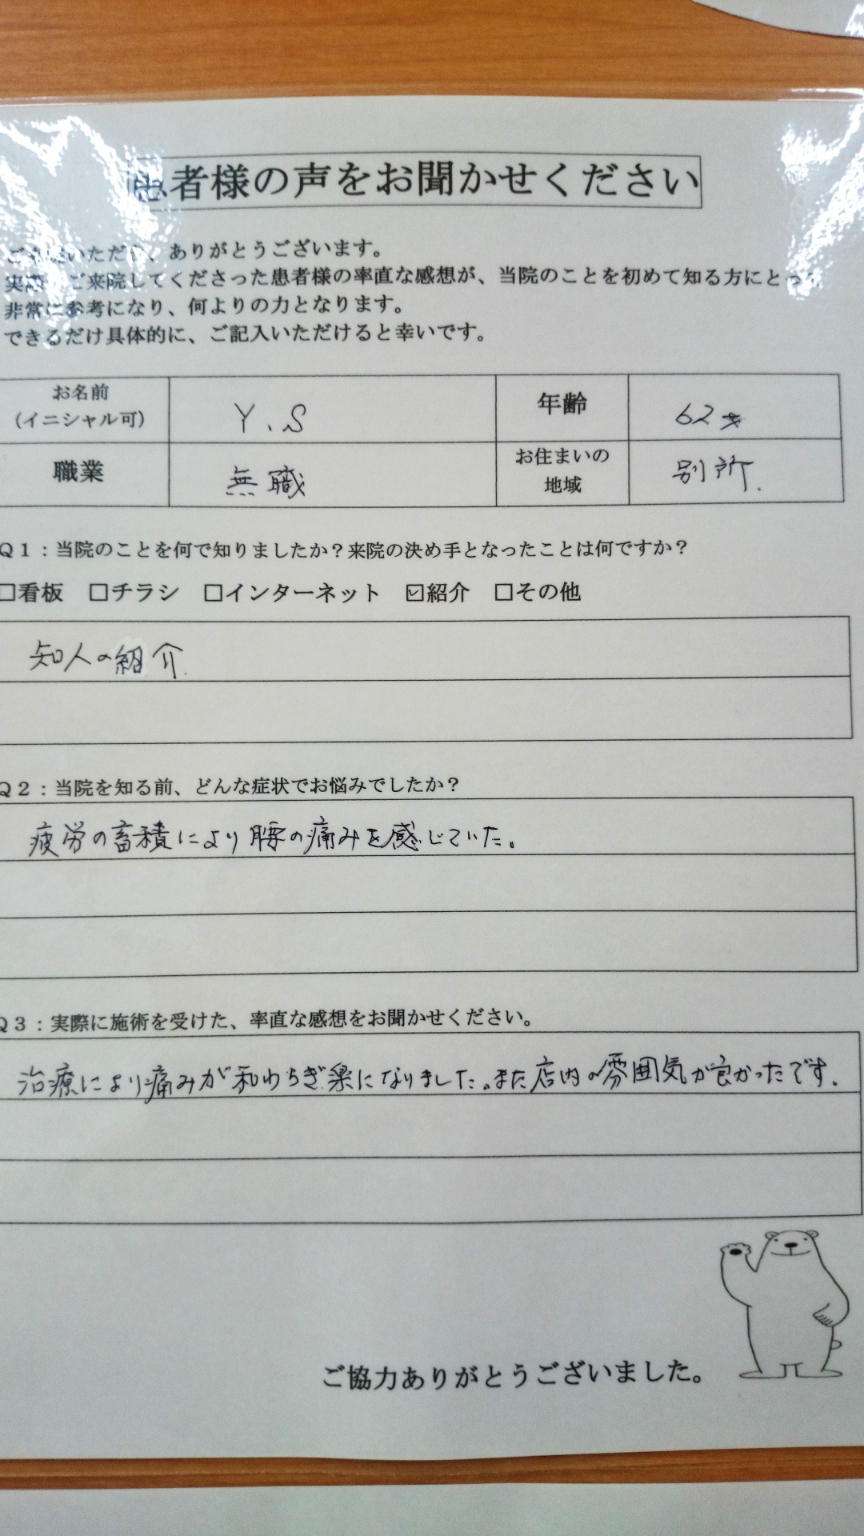 患者様の声をお聞かせください
いただき、ありがとうございます。
実際にご来院してくださった患者様の率直な感想が、当院のことを初めて知る方にとって
非常に参考になり、何よりの力となります。
できるだけ具体的に、ご記入いただけると幸いです。
お名前
(イニシャル可)
Y.S
年齢
62才
職業
無職
お住まいの
地域
別所.
Q1:当院のことを何で知りましたか?来院の決め手となったことは何ですか?
□看板 □チラシ □インターネット ☑紹介 □その他
知人の紹介
Q2:当院を知る前、どんな症状でお悩みでしたか?
疲労の畜積により腰の痛みを感じていた。
Q3:実際に施術を受けた、率直な感想をお聞かせください。
治療により痛みが和わらぎ楽になりました。また店内の雰囲気が良かったです.
ご協力ありがとうございました。